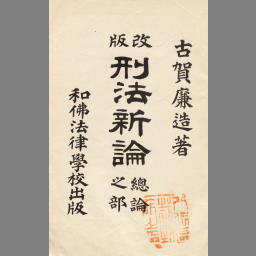 古賀廉造著
改版
刑法新論
總論之部
和佛法律學校出版